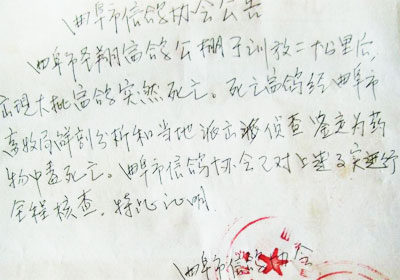 曲阜市信鸽协会公告
曲阜市圣翔信鸽公棚于训放二十公里后,
出现大批信鸽突然死亡。死亡信鸽经曲阜市
畜牧局解剖分析和当地派出所侦查鉴定为药
物中毒死亡。曲阜市信鸽协会已对上述事实进行
全程核查。特此证明
曲阜市信鸽协会